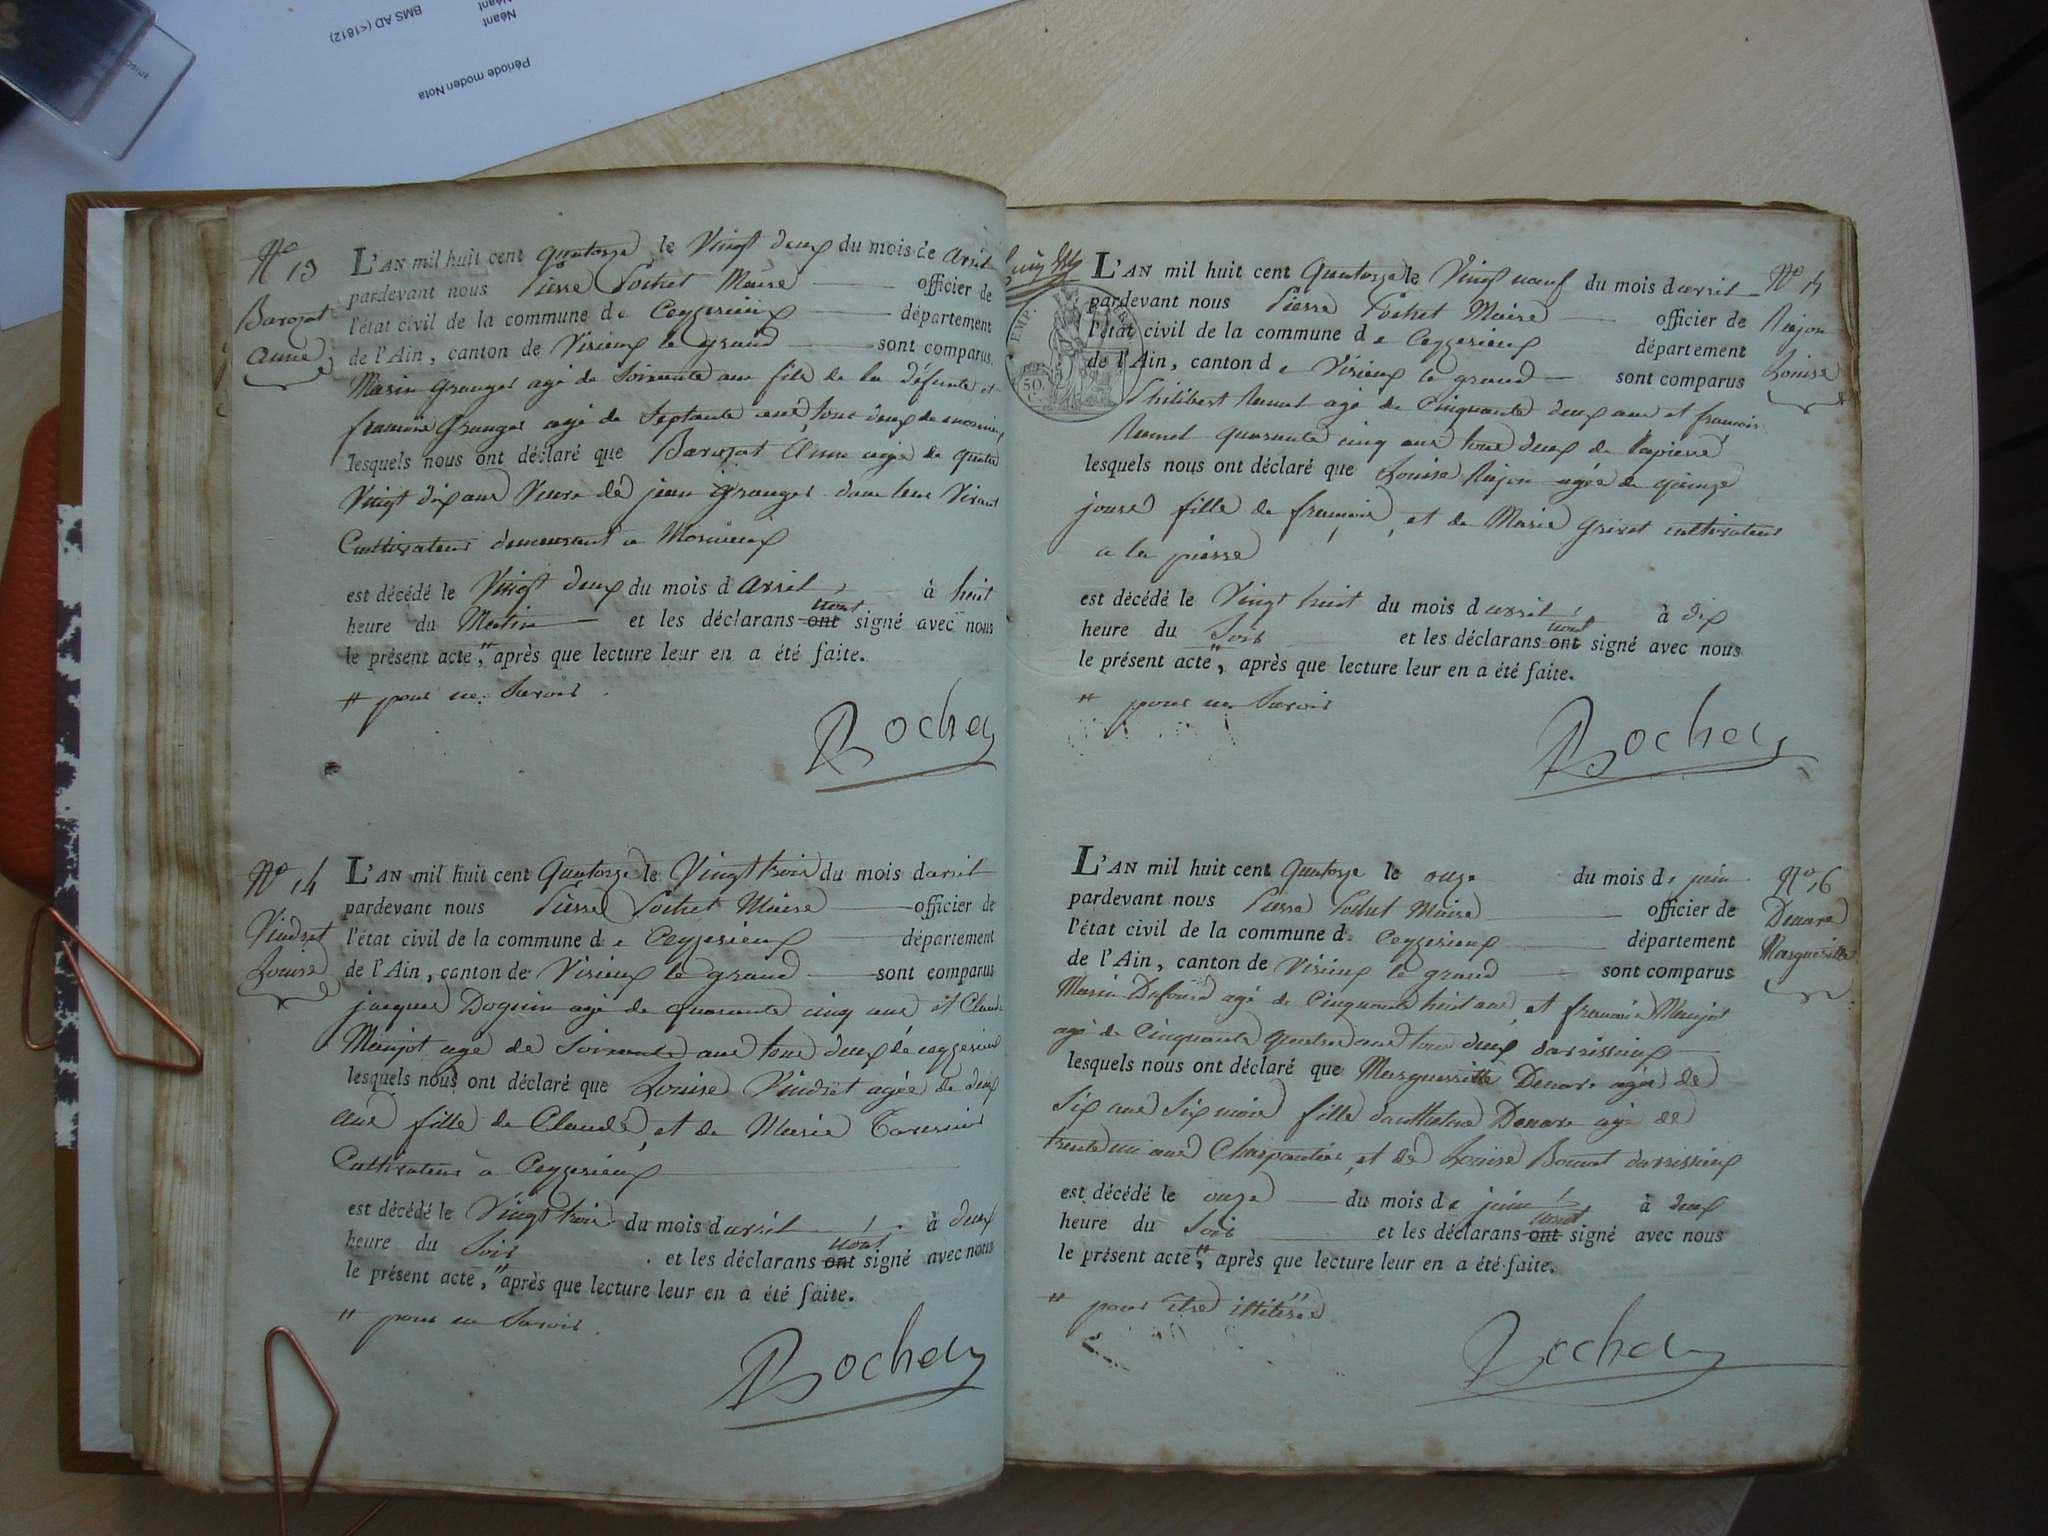 Néant
Néant
BMS AD (<1812)
Période moden Nota
N° 13
Barojat
Anne
L'AN mil huit cent quatorze le Vingt deux du mois de avril
pardevant nous Pierre Pochet Maire officier de
l'état civil de la commune de Ceyzerieux département
de l'Ain, canton de Virieux le grand sont comparus
Marin Granger agé de Soixante ans fils de la défunte et
francois Granger agé de Septante ans tous deux de
lesquels nous ont déclaré que Barojat Anne agée de quatre
Vingt dix ans Veuve de jean Granger dans leur Vivant
Cultivateurs demeurant a Morinieux
est décédé le Vingt deux du mois d avril à huit
heure du Matin et les déclarans ont nont signé avec nous
le présent acte," après que lecture leur en a été faite.
" pour ne Savoir.
Pochet
N° 14
Vindret
Louise
L'AN mil huit cent Quatorze le Vingt trois du mois davril
pardevant nous Pierre Pochet Maire officier de
l'état civil de la commune de Ceyzerieux département
de l'Ain, canton de Virieux le grand sont comparus
jacques Doguin agé de quarante cinq ans et Claude
Maujot agé de Soixante ans tous deux de ceyzerieux
lesquels nous ont déclaré que Louise Vindret agée de deux
ans fille de Claude, et de Marie
Cultivateurs a Ceyzerieux
est décédé le Vingt trois du mois d avril à deux
heure du Soir et les déclarans ont nont signé avec nous
le présent acte," après que lecture leur en a été faite.
" pour ne Savoir.
Pochet
EMP.
50
C.
L'AN mil huit cent Quatorze le Vingt neuf du mois d avril
pardevant nous Pierre Pochet Maire officier de
l'état civil de la commune de Ceyzerieux département
de l'Ain, canton de Virieux le grand sont comparus
Philibert Ramel agé de Cinquante deux ans et francois
Ramel quarante cinq ans tous deux de
lesquels nous ont déclaré que Louise Rajon agée de quinze
jours fille de francois, et de Marie Grivet cultivateurs
a la pierre
est décédé le Vingt huit du mois d avril à dix
heure du Soir et les déclarans ont nont signé avec nous
le présent acte", après que lecture leur en a été faite.
" pour ne Savoir
Pochet
N° 15
Rajon
Louise
L'AN mil huit cent Quatorze le onze du mois de juin
pardevant nous Pierre Pochet Maire officier de
l'état civil de la commune de Ceyzerieux département
de l'Ain, canton de Virieux le grand sont comparus
Marin Dufour agé de Cinquante huit ans, et francois Maujot
agé de Cinquante quatre ans tous deux davrissieux
lesquels nous ont déclaré que Margueritte Denare agée de
Six ans Six mois fille danthelme Denare agé de
trente un ans Charpentier, et de Louise Bonnet davrissieux
est décédé le onze du mois de juin à deux
heure du Soir et les déclarans ont nont signé avec nous
le présent acte", après que lecture leur en a été faite.
" pour être illiterés
Pochet
N° 16
Denare
Marguerite